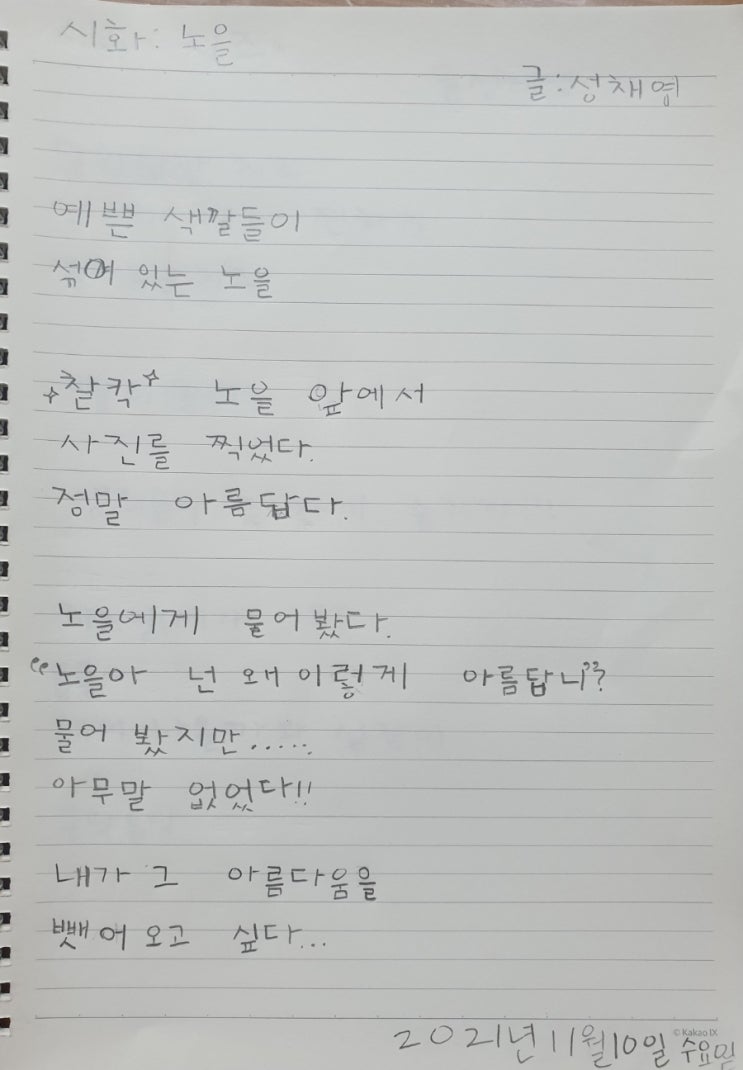 시화: 노을
글:성채영
예쁜 색깔들이
섞여 있는 노을
찰칵 노을 앞에서
사진를 찍었다.
정말 아름답다.
노을에게 물어봤다.
“노을아 넌 왜 이렇게 아름답니”?
물어 봤지만......
아무말 없었다!!
내가 그 아름다움을
뺏어 오고 싶다...
© Kakao IX
2021년 11월10일 수요일